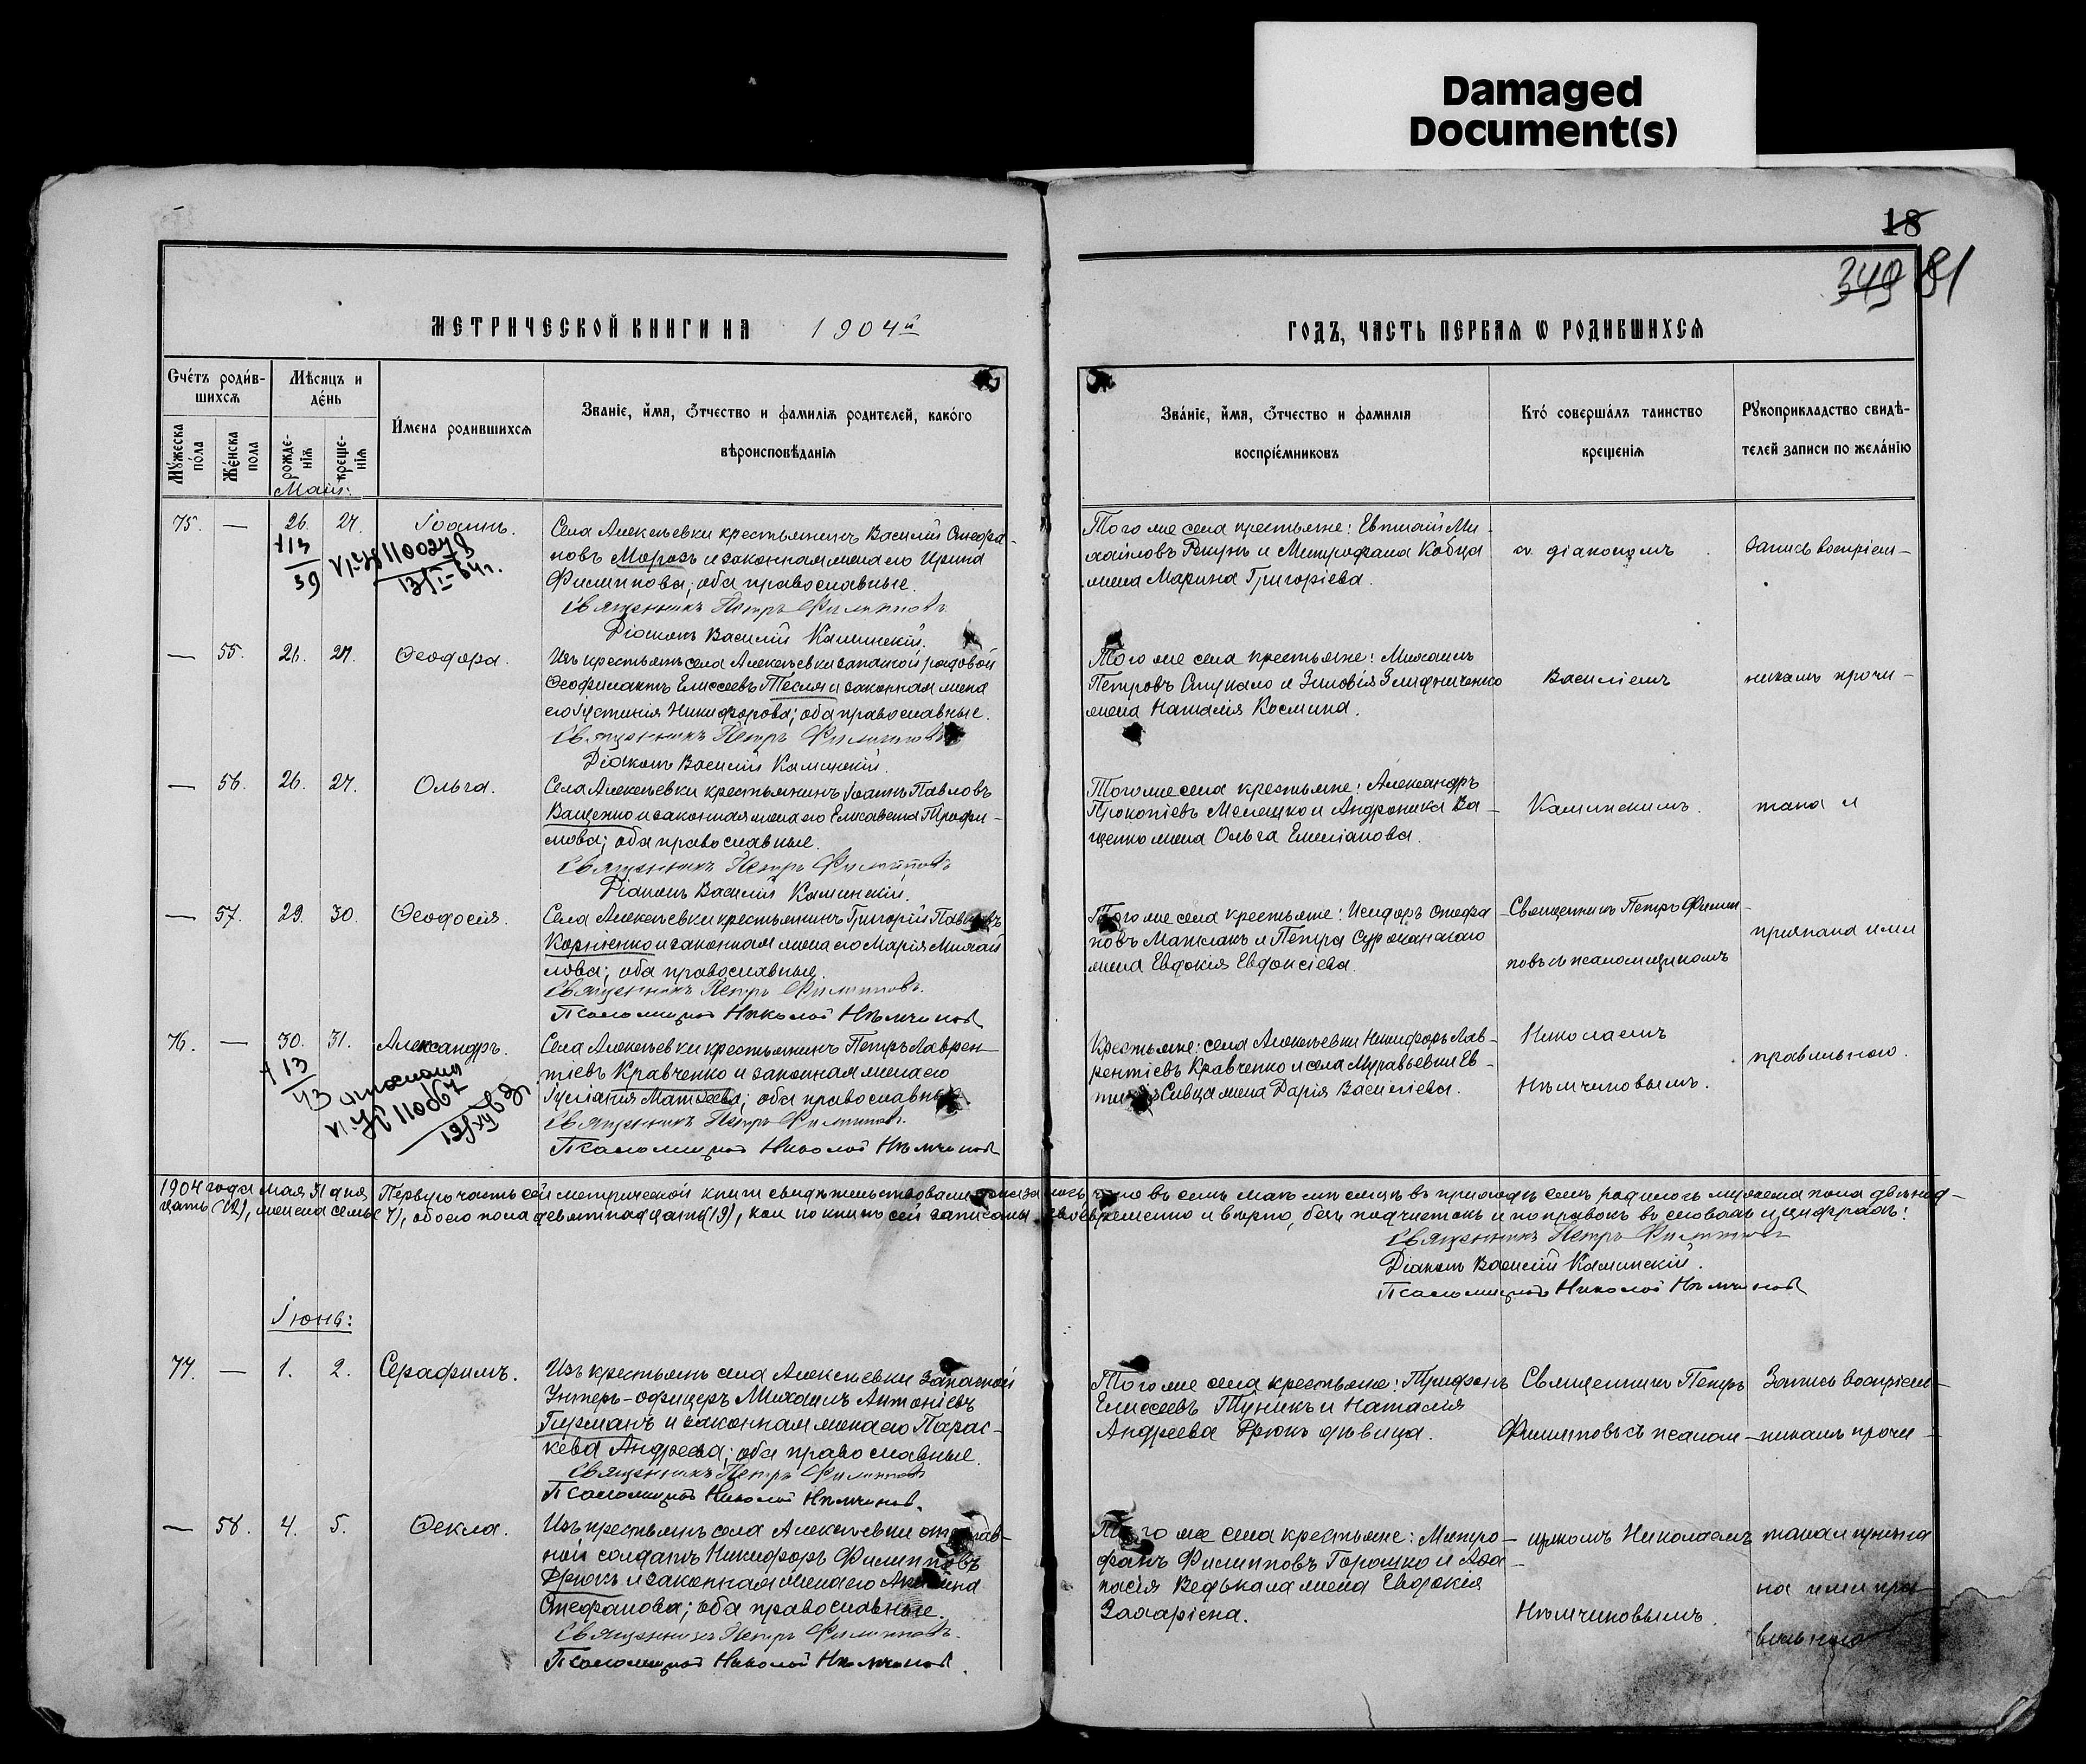 Damaged
Document(s)
18
349 81
МЕТРИЧЕСКОЙ КНИГИ НА 1904й
ГОДЪ, ЧАСТЬ ПЕРВАЯ Ѡ РОДИВШИХСЯ
Счетъ родив-
шихся
Мѣсяцъ и
день
Имена родившихся
Званіе, имя, ѻтчество и фамилія родителей, какого
вѣроисповѣданія
Званіе, имя, ѻтчество и фамилія
воспріемниковъ
Кто совершалъ таинство
крещенія
Рукоприкладство свидѣ-
телей записи по желанію
Мужеска
пола
Женска
пола
рожде-
нія
креще-
нія
Май:
75. — 26. 27. Іоаннъ.
Села Алексѣевки крестьянинъ Василій Стефа-
новъ Морозъ и законная жена его Ирина
Филиппова; оба православные.
Священникъ Петръ Филипповъ
Діаконъ Василій Калинскій.
Того же села крестьяне: Евтихій Ми-
хайловъ Рекунъ и Митрофана Кобца
жена Марина Григоріева.
съ діакономъ
Запись воспріем-
— 55. 26. 27. Ѳеодора.
Изъ крестьянъ села Алексѣевки запасной рядовой
Ѳеофилактъ Елисеевъ Тесля и законная жена
его Іустинія Никифорова; оба православные.
Священникъ Петръ Филипповъ
Діаконъ Василій Калинскій.
Того же села крестьяне: Михаилъ
Петровъ Стукало и Зиновія Злидниченко
жена Наталія Космина.
Василіемъ
никамъ прочи-
— 56. 26. 27. Ольга.
Села Алексѣевки крестьянинъ Іоаннъ Павловъ
Ващенко и законная жена его Елисавета Трофи-
мова; оба православные.
Священникъ Петръ Филипповъ
Діаконъ Василій Калинскій.
Того же села крестьяне: Александръ
Прокопіевъ Мелешко и Андроника Ва-
щенко жена Ольга Емеліанова.
Калинскимъ.
тана и
— 57. 29. 30. Ѳеодосія.
Села Алексѣевки крестьянинъ Григорій Павловъ
Корніенко и законная жена его Марія Михай
лова; оба православные.
Священникъ Петръ Филипповъ.
Псаломщикъ Николай Нѣмчиновъ
Того же села крестьяне: Исидоръ Стефа
новъ Матлакъ и Петра Суржанского
жена Евдокія Евдоксіева.
Священникъ Петръ Филип-
повъ съ псаломщикомъ
признана ими
76. — 30. 31. Александръ.
Села Алексѣевки крестьянинъ Петръ Лаврен-
тіевъ Кравченко и законная жена его
Іуліанія Матѳеева; оба православные.
Священникъ Петръ Филипповъ.
Псаломщикъ Николай Нѣмчиновъ
Крестьяне: села Алексѣевки Никифоръ Лав-
рентіевъ Кравченко и села Муравьевки Ев-
Сивца жена Дарія Василіева.
Николаемъ
Нѣмчиновымъ.
правильною.
1904 года мая 31 дня Первую часть сей метрической книги свидѣтельствовали и оказалось, что въ семъ маѣ мѣсяцѣ въ приходѣ семъ родилось мужеска пола двѣнад-
цать (12), женска семь (7), обоего пола девятнадцать (19), кои по книгѣ сей записаны своевременно и вѣрно, безъ подчистокъ и поправокъ въ словахъ и цифрахъ:
Священникъ Петръ Филипповъ
Діаконъ Василій Калинскій.
Псаломщикъ Николай Нѣмчиновъ
Іюнь:
77. — 1. 2. Серафимъ.
Изъ крестьянъ села Алексѣевки запасной
Унтеръ-офицеръ Михаилъ Антоніевъ
Гирманъ и законная жена его Парас-
кева Андреева; оба православные.
Священникъ Петръ Филипповъ
Псаломщикъ Николай Нѣмчиновъ.
Того же села крестьяне: Трифонъ
Елисеевъ Туникъ и Наталія
Андреева Дрюкъ дѣвица.
Священникъ Петръ
Филипповъ съ псалом-
Запись воспріем-
никамъ прочи-
— 58. 4. 5. Ѳекла.
Изъ крестьянъ села Алексѣевки отстав-
ной солдатъ Никифоръ Филипповъ
Дрюкъ и законная жена его
Стефанова; оба православные.
Священникъ Петръ Филипповъ.
Псаломщикъ Николай Нѣмчиновъ.
Того же села крестьяне: Митро-
фанъ Филипповъ Горошко и Аѳа-
насія Ведькала жена Евдокія
Захаріена.
щикомъ Николаемъ
Нѣмчиновымъ.
тана и призна
на ими пра
вильною